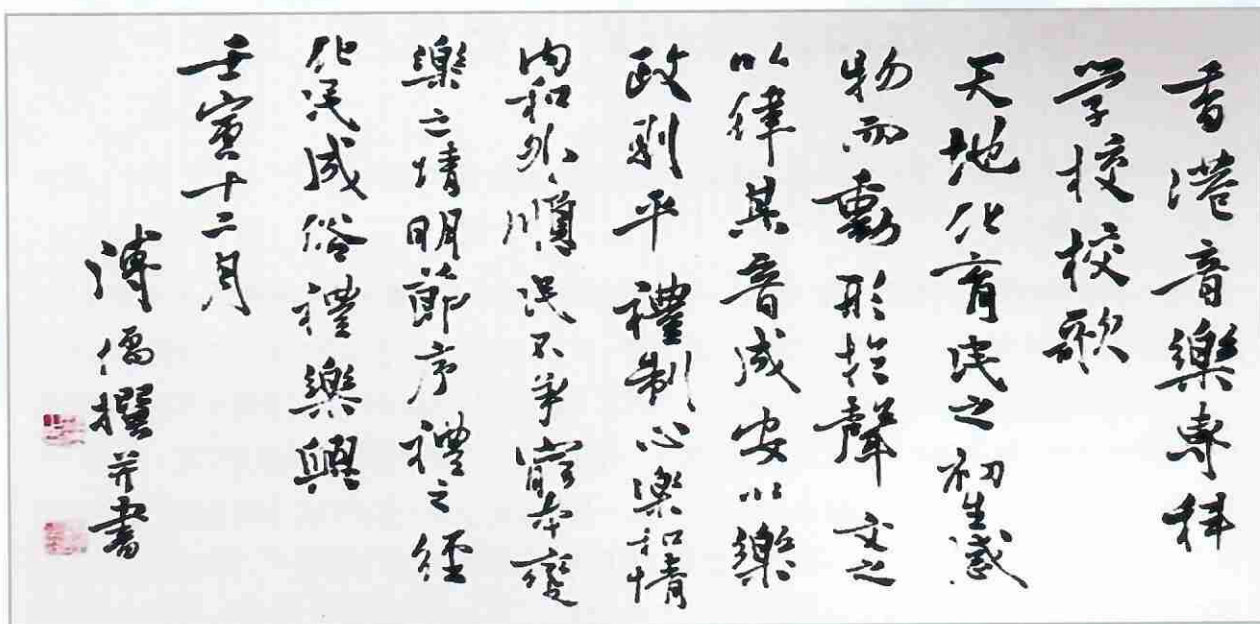 香港音樂專科
学校校歌
天地化育民之初生感
物而動形於聲文之
以律其音成安以樂
政則平禮制心樂和情
内和外順民不爭窮本變
樂之情明節序禮之經
化民成俗禮樂興
壬寅十二月
溥儒撰并書